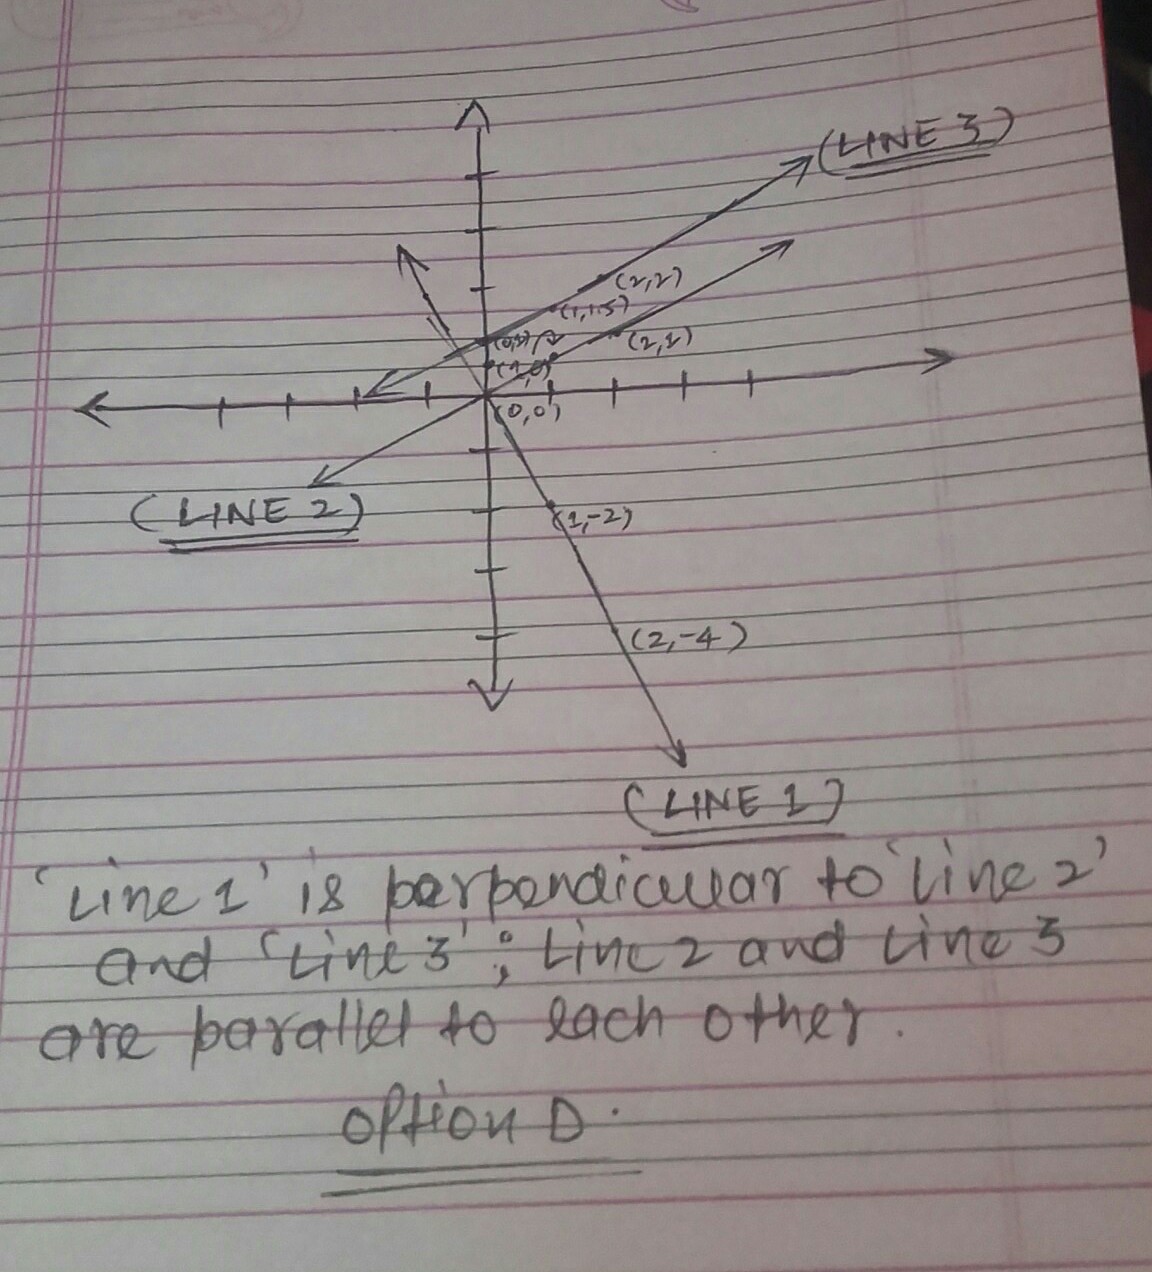 (LINE 3)
(2,2)
(1,1.5)
(2,1)
(0,0)
(LINE 2)
(1,-2)
(2,-4)
(LINE 1)
'Line 1' is perpendicular to 'Line 2'
and 'Line 3'; Line 2 and Line 3
are parallel to each other.
Option D.